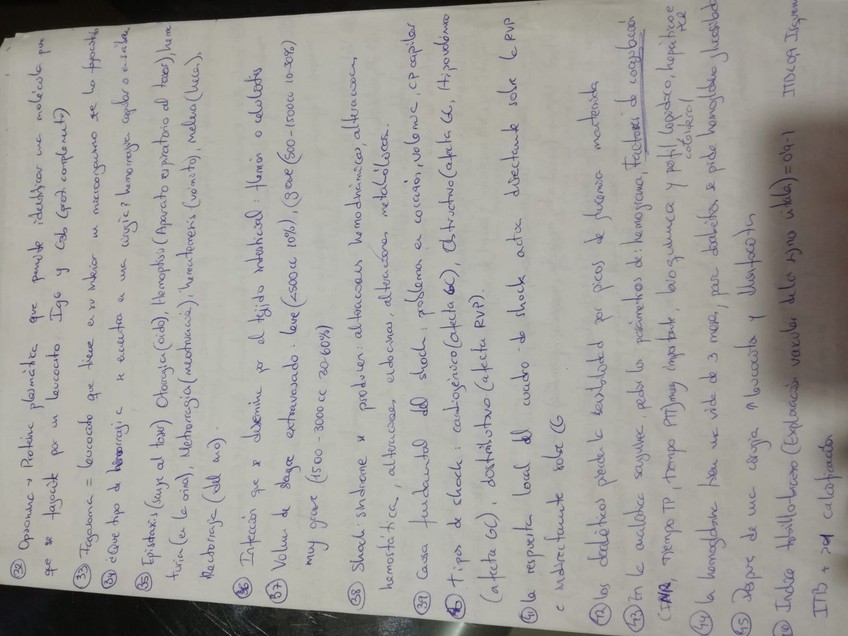 32 Opsonina → Proteína plasmática que permite identificar una molécula para
que se fagocite por un leucocito IgG y C3b (prot. complemento)
33 Fagosoma = leucocito que tiene en su interior un microorganismo que lo
34 ¿Que tipo de hemorragia se encuentra en una cirugía? hemorragia capilar o en sábana
35 Epistaxis (surge al toser) Otorragia (oído), Hemoptisis (Aparato respiratorio al toser), hema
turia (en la orina), Metrorragia (menstruación), hematemesis (vómito), melena (heces),
Rectorragia (del ano).
36 Infección que se disemina por el tejido intersticial: flemón o celulitis
37 Volumen de sangre extravasado: leve (<500cc 10%), (grave (500-1500cc 10-30%)
muy grave (1500-3000cc 30-60%)
38 Shock: síndrome se producen: alteraciones hemodinámicas, alteraciones
hemostática, alteraciones endocrinas, alteraciones metabólicas.
39 Causa fundamental del shock: problemas en corazón, volemia, cp capilar
40 Tipos de shock: cardiogénico (afecta GC), Obstructivo (afecta GC, Hipovolémico
(afecta GC), distributivo (afecta RVP).
41 la respuesta local del cuadro de shock actúa directamente sobre la RVP
e indirectamente sobre GC
42 los diabéticos pierde la sensibilidad por picos de glucemia mantenida
43 En la analítica sanguínea pedir los parámetros de: hemograma, factores de coagulación
(INR, Tiempo TP, tiempo PTT) muy importante, bioquímica y perfil lipídico, hepático e
colesterol PCR
44 la hemoglobina tiene una vida de 3 meses, para diabéticos se pide hemoglobina glicosilada
45 después de una cirugía ↑ leucocitos y
Indice tobillo-brazo (Exploración vascular de los signos vitales) = 0,9-1 ITB
ITB + >1 calcificación